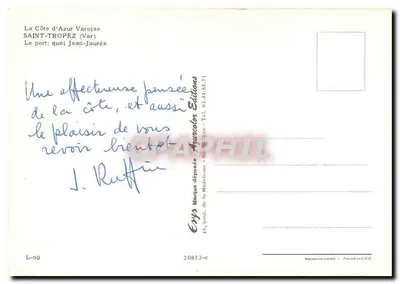 La Côte d'Azur Varoise
SAINT-TROPEZ (Var)
Le port: quai Jean-Jaurès
Une affectueuse pensée
de la côte, et aussi
le plaisir de vous
revoir bientôt
J. Ruffin
Esys Marque déposée Azurcolor Editions
L-90
20813-c